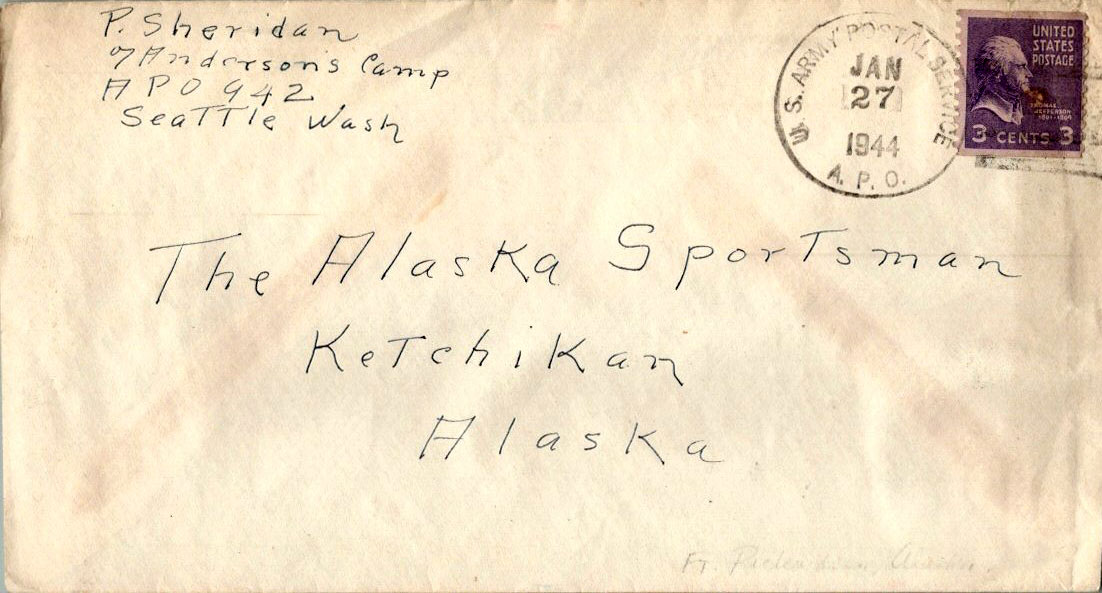 P. Sheridan
Anderson's Camp
APO 942
Seattle Wash
U.S. ARMY POSTAL SERVICE
JAN
27
1944
A. P. O.
UNITED
STATES
POSTAGE
THOMAS
JEFFERSON
1801-1809
3 CENTS 3
The Alaska Sportsman
Ketchikan
Alaska
Ft.